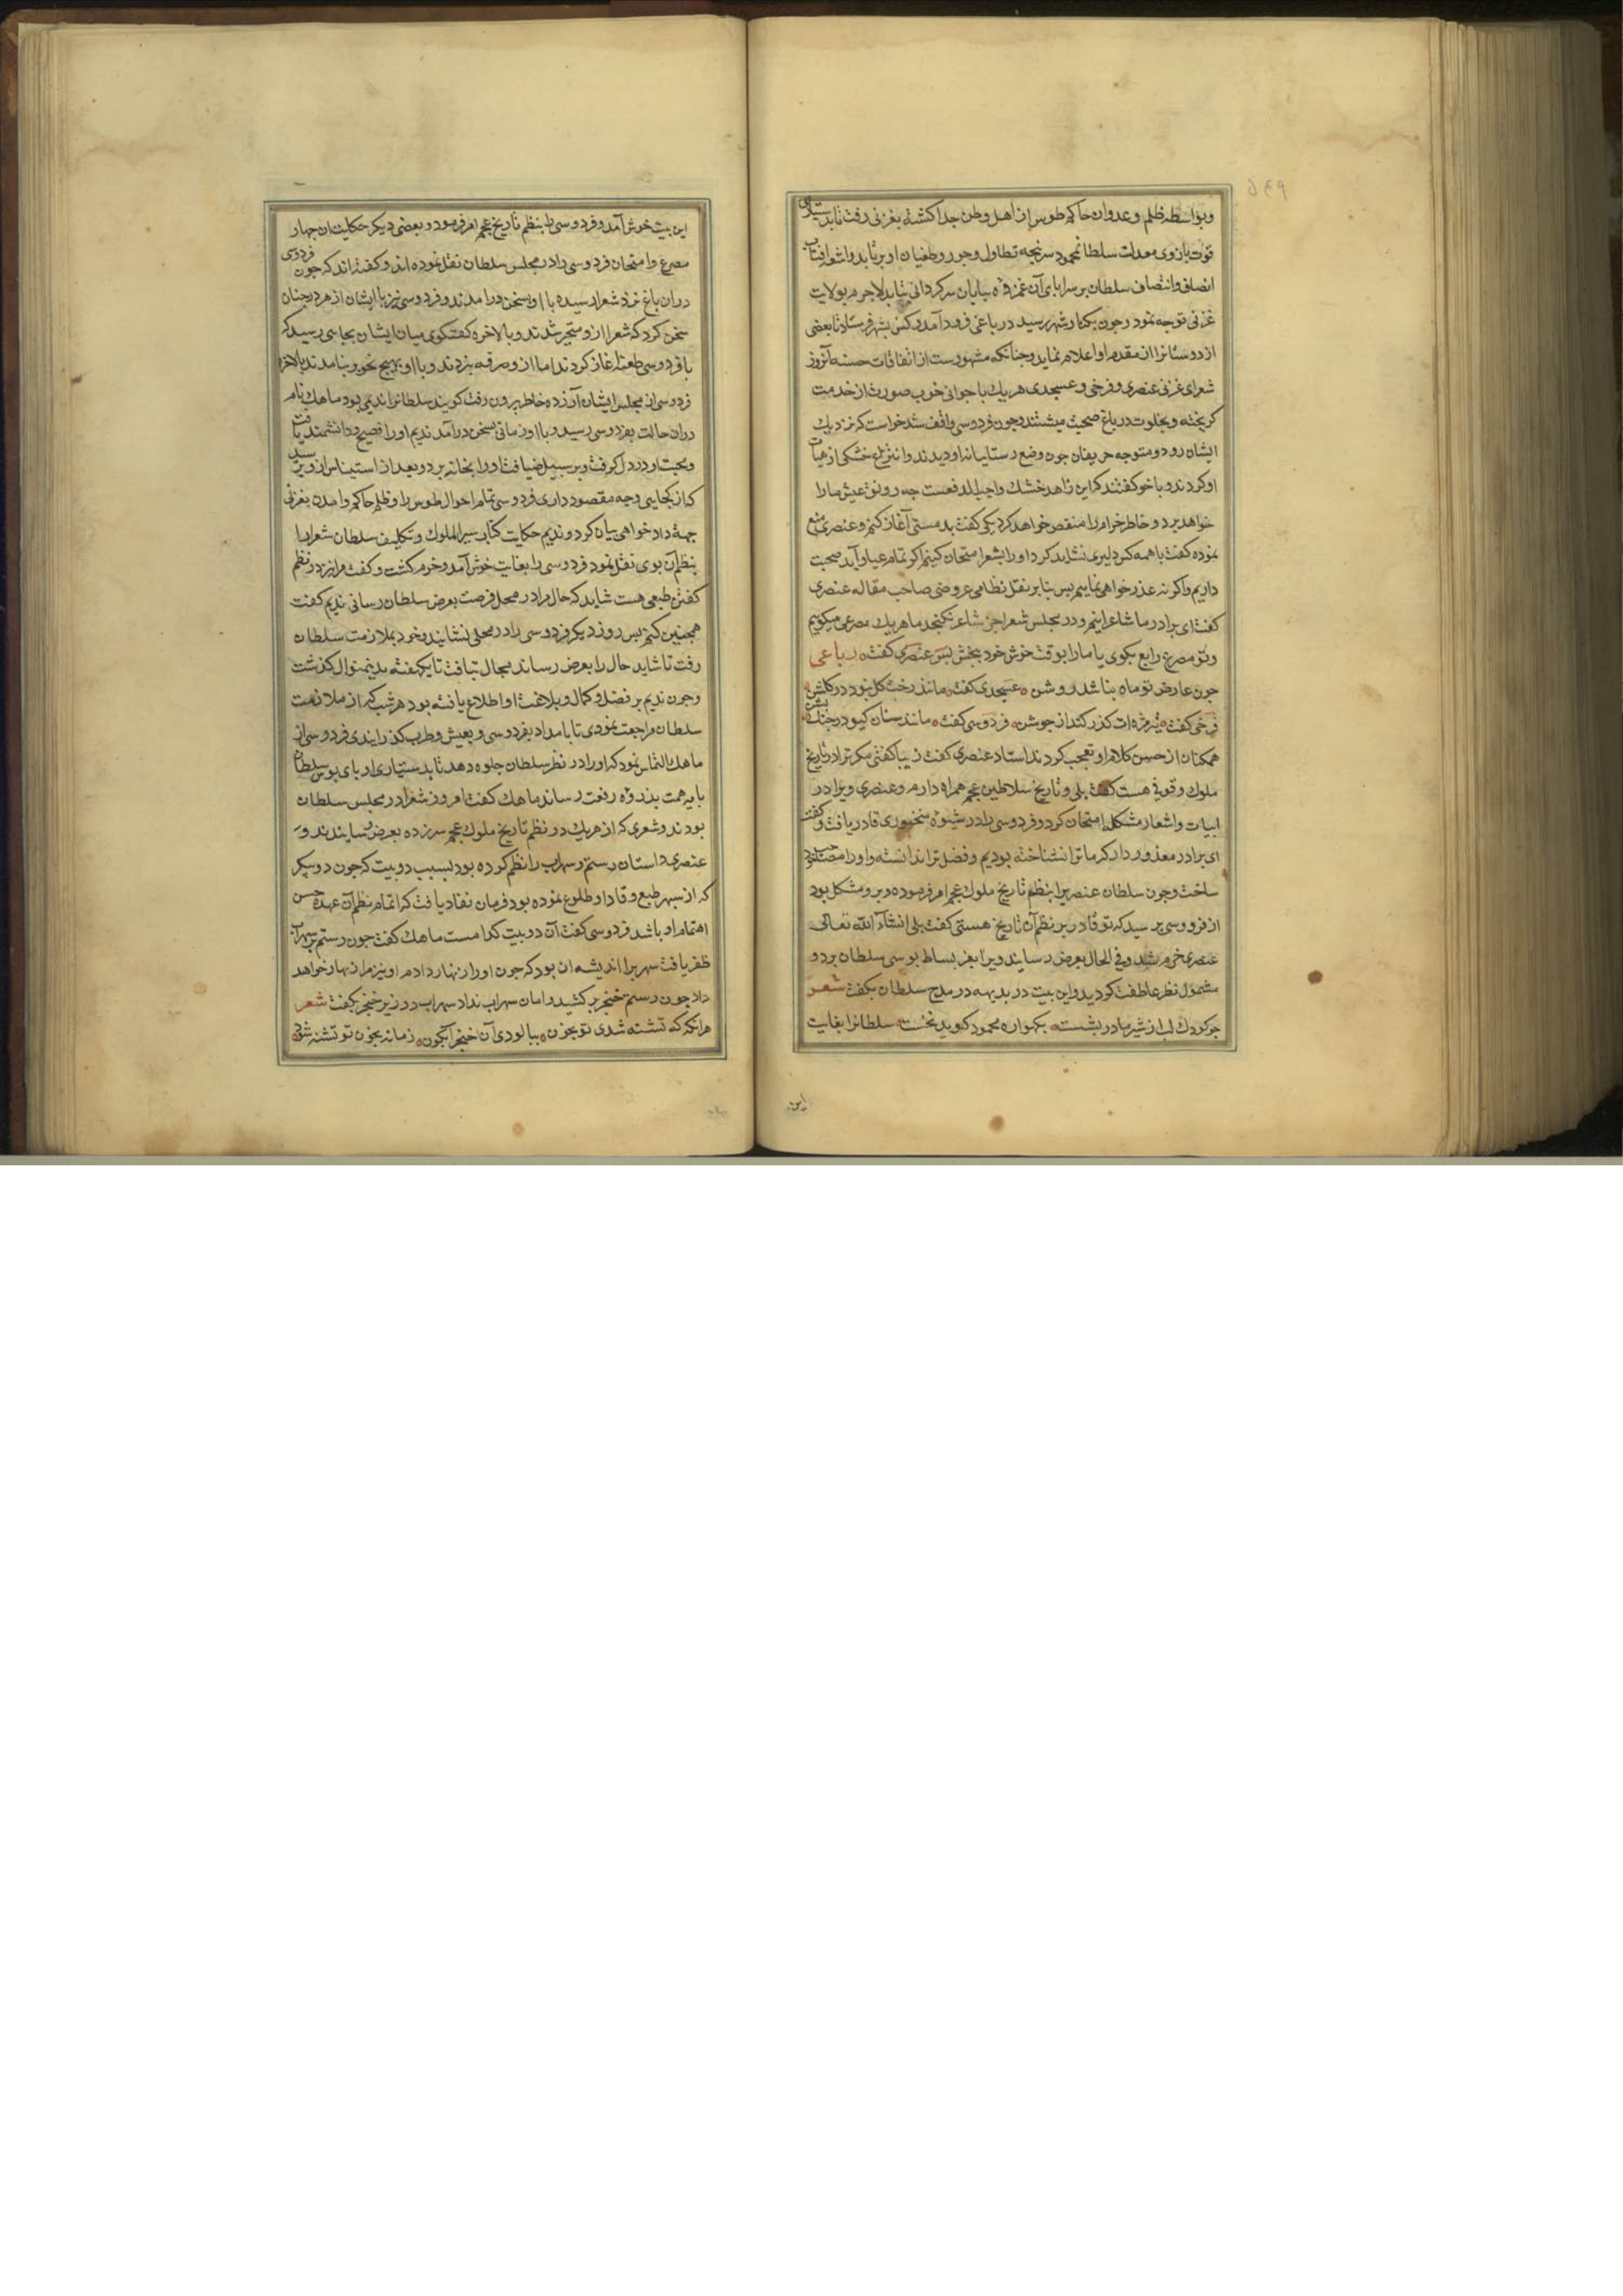 وبواسطه ظلم وعدوان حاکم طوس از اهل وطن جدا کشته بغزنی رفت تا بدستیاری
قوت بازوی معدلت سلطان محمود سرپنجه تطاول وجور وطغیان او برتابد واشعه افتاب
انصاف وانتصاف سلطان بر سراپای آن غمزده بیابان سرکردانی بتابد لاجرم بولایت
غزنی توجه نمود وجون بکنار شهر رسید در باغی فرود آمد وکس بشهر فرستاد تا بعضی
از دوستانرا از مقدم او اعلام نماید وجنانکه مشهورست از اتفاقات حسنه آنروز
شعرای غزنی عنصری وفرخی وعسجدی هریك با جوانی خوب صورت از خدمت
کریخته وبخلوت در باغ صحبت میداشتند وجون فردوسی واقف شد خواست که نزدیك
ایشان رود ومتوجه حریفان جون وضع رستایانه او دیدند واننزیل خشکی از هیات
او کردند وباخو کفتند که این زاهد خشك واجب الدفعست جه رونق عیش مارا
خواهد برد وخاطر خرام را منغص خواهد کرد یکی کفت بدمستی آغاز کنم وعنصری منع
نموده کفت با همه کس دلیری نشاید کرد اورا بشعر امتحان کنیم اکر تمام عیار آید صحبت
داریم واکر نه عذر خواهی نماییم پس بنابر نقل نظامی عروضی صاحب مقاله عنصری
کفت ای برادر ما شاعرانیم ودر مجلس شعرا جز شاعر نکنجد ما هریك مصرعی میکوییم
وتو مصرع رابع بکوی یا مارا بوقت خوش خود ببخش پس عنصری کفت رباعی
جون عارض تو ماه نباشد روشن عسجدی کفت مانند رخت کل نبود در کلشن
فرخی کفت تیر مژه ات کذر کند از جوشن فردوسی کفت مانند سنان کیو در جنك پشن
همکنان از حسن کلام او تعجب کردند استاد عنصری کفت زیبا کفتی مکر ترا در تاریخ
ملوك وقوفی هست کفت بلی وتاریخ سلاطین عجم همراه دارم وعنصری ویرا در
ابیات واشعار مشکله امتحان کرد وفردوسی را در شیوه سخنوری قادر یافت وکفت
ای برادر معذور دار که ما ترا نشناخته بودیم وفضل ترا ندانسته واورا مصاحب خود
ساخت وجون سلطان عنصریرا بنظم تاریخ ملوك عجم امر فرموده وبرو مشکل بود
از فردوسی پرسید که تو قادر بر نظم آن تاریخ هستی کفت بلی انشاء الله تعالی
عنصری خرم شد وفی الحال بعرض رسانید ویرا بعز بساط بوسی سلطان برد و
مشمول نظر عاطفت کردید واین بیت در بدیهه در مدح سلطان بکفت شعر
جو کودك لب از شیر مادر بشست بکهواره محمود کوید نخست سلطانرا بغایت
این
این بیت خوش آمد وفردوسی را بنظم تاریخ عجم امر فرمود وبعضی دیکر حکایت ان جهار
مصرع وامتحان فردوسی را در مجلس سلطان نقل نموده اند وکفته اند که جون فردوسی
دران باغ نزد شعرا رسیده با او سخن درامدند وفردوسی نیز با ایشان از هر در جنان
سخن کرد که شعرا ازو متحیر شدند وبالاخره کفتکوی میان ایشان بجایی رسید که
با فردوسی طعنه آغاز کردند اما ازو صرفه نبردند وبا او بهیج نحو برنیامدند بالاخره
فردوسی از مجلس ایشان آزرده خاطر بیرون رفت کویند سلطانرا ندیمی بود ماهك نام
دران حالت بفردوسی رسید وبا او زمانی بسخن درآمد ندیم اورا فصیح ودانشمند یافت
ومحبت او در دل کرفت وبر سبیل ضیافت اورا بخانه برد وبعد از استیناس ازو پرسید
که از کجایی وچه مقصود داری فردوسی تمام احوال طوس را وظلم حاکم وامدن بغزنی
جهة داد خواهی بیان کرد وندیم حکایت کتاب سیر الملوك وتکلیف سلطان شعرا را
بنظم آن بوی نقل نمود فردوسی را بغایت خوش آمد وخرم کشت وکفت مرا نیز در نظم
کفتن طبعی هست شاید که حال مرا در محل فرصت بعرض سلطان رسانی ندیم کفت
همجنین کنم پس روز دیکر فردوسی را در محلی نشانید وخود بملازمت سلطان
رفت تا شاید حال را بعرض رساند مجال نیافت تا یکهفته بدینمنوال کذشت
وجون ندیم بر فضل وکمال وبلاغت او اطلاع یافته بود هر شب که از ملازمت
سلطان مراجعت نمودی تا بامداد بفردوسی وبعیش وطرب کذرانیدی فردوسی از
ماهك التماس نمود که اورا در نظر سلطان جلوه دهد تا بدستیاری او پای بوس سلطان
پایه همت بذروه رفعت رساند ماهك کفت امروز شعرا در مجلس سلطان
بودند وشعری که از هریك در نظم تاریخ ملوك عجم سرزده بعرض رسانیدند و
عنصری داستان رستم وسهراب را نظم کرده بود بسبب دو بیت که جون دو پیکر
که از سپهر طبع وقاد او طلوع نموده بود فرمان نفاد یافت که اتمام نظم آن عهده حسن
اهتمام او باشد فردوسی کفت آن دو بیت کدامست ماهك کفت جون رستم بر سهراب
ظفر یافت سهراب را اندیشه ان بود که جون اورا زنهار دادم او نیز مرا زنهار خواهد
داد جون رستم خنجر بر کشید وامان سهراب نداد سهراب در زیر خنجر بکفت شعر
هرانکه که تشنه شدی تو بخون بیالودی آن خنجر آبکون زمانه بخون تو تشنه شود